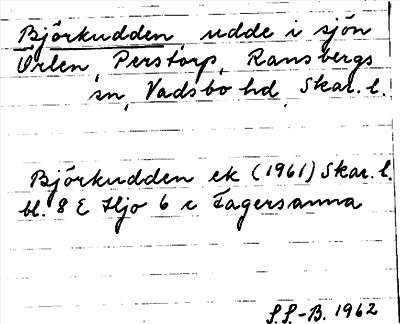 Björkudden, udde i sjön
Örlen, Perstorp, Ransbergs
sn, Vadsbo hd, Skar. l.
Björkudden ek (1961) Skar. l.
bl. 8 E Hjo 6 c Fagersanna
S.S.-B. 1962